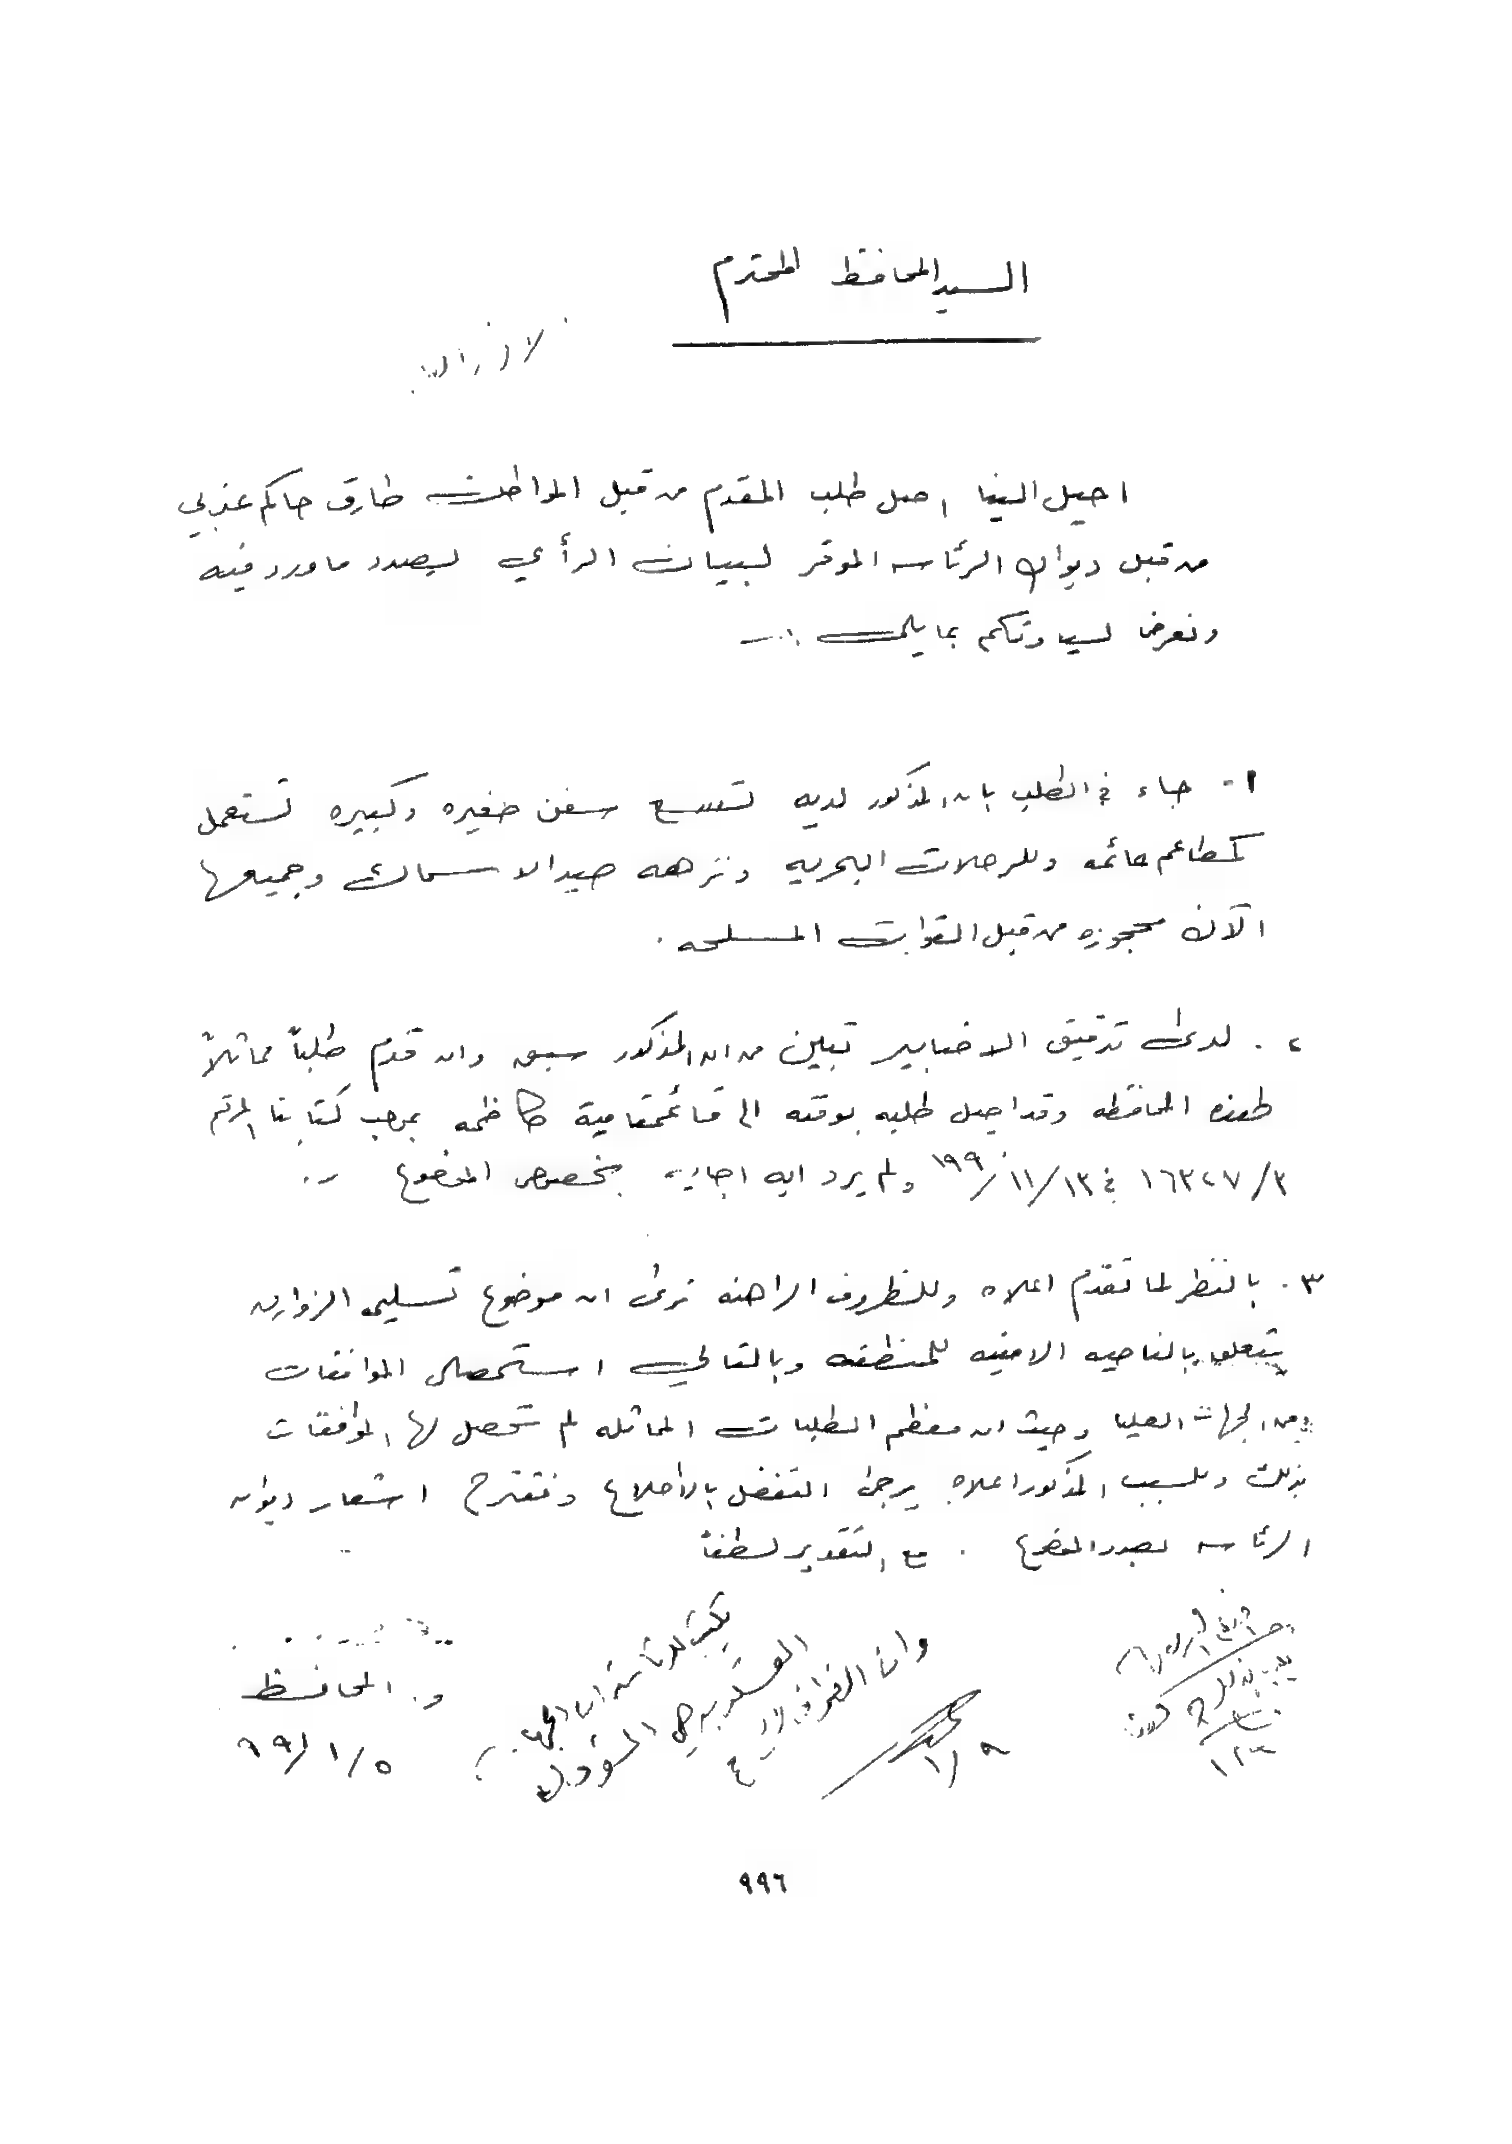 السيد المحافظ المحترم
احيل الينا اصل طلب المقدم من قبل المواطن طارق حاكم عذبي
من قبل ديوان الرئاسه الموقر لبيان الرأي لبصدد ماورد فيه
ونعرض لسيادتكم بما يلي :-
١- جاء في الطلب بان المذكور لديه تسع سفن صغيره وكبيره تستعمل
كمطاعم عائمه وللرحلات البحريه ونزهه صيد الاسماك وجميعها
الآن محجوزه من قبل القوات المسلحه .
٢. لدى تدقيق الاضابير تبين من ان المذكور سبق وان قدم طلباً مماثلاً
لهذه المحافظه وقد احيل طلبه بوقته الى قائمقامية كاظمه بموجب كتابنا المرقم
٣/١٦٣٢٧ في ١٩٩٠/١١/١٣ ولم يرد ايه اجابه بخصوص الموضوع .
٣. بالنظر لما تقدم اعلاه وللظروف الراهنه نرى ان موضوع تسليم الزوارق
يتعلق بالناحيه الامنيه للمنطقه وبالتالي استحصال الموافقات
من الجهات العليا وحيث ان معظم الطلبات المماثله لم تحصل لها الموافقات
بذلك وللسبب المذكور اعلاه يرجى التفضل بالأطلاع ونقترح اشعار ديوان
الرئاسه بصدد الموضوع . مع التقدير لطفاً
يكتب للرئاسة ان الجهات
العسكريه هي المسؤوله
١/٩
و. المحافظ
٩٩/١/٥
٩٩٦